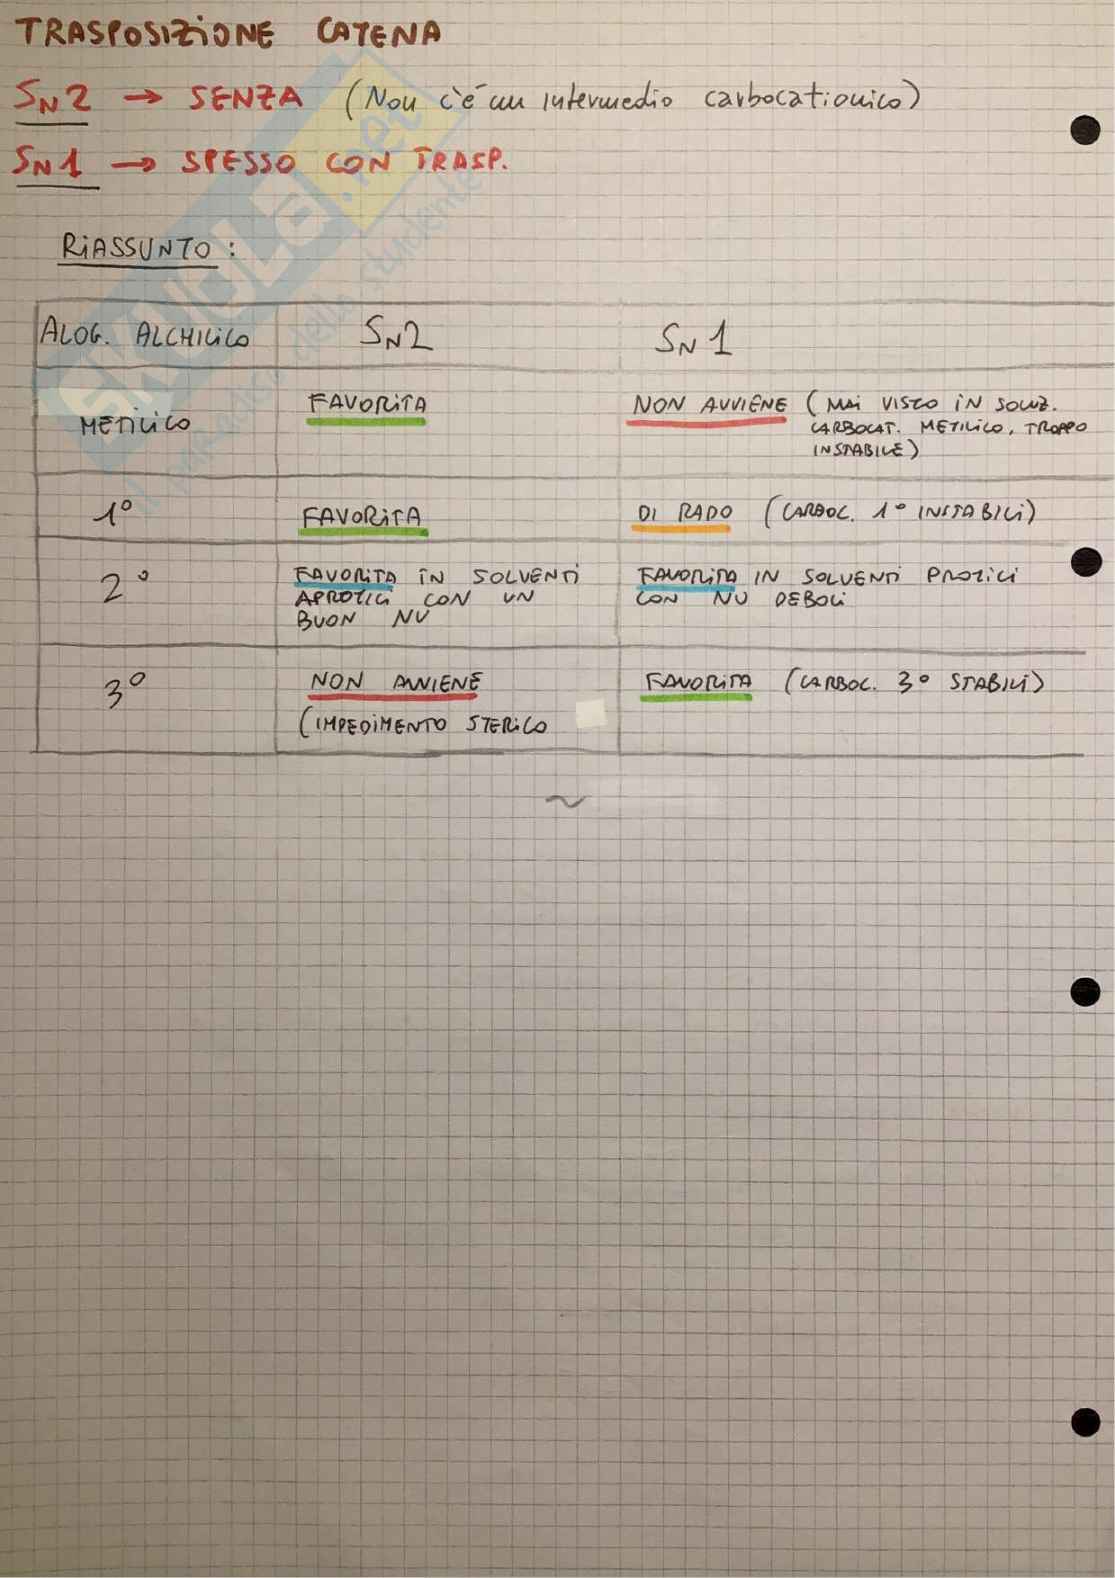 TRASPOSIZIONE CATENA
SN2 → SENZA (Non c'è un intermedio carbocationico)
SN1 → SPESSO CON TRASP.
RIASSUNTO:
ALOG. ALCHILICO SN2 SN1
METILICO FAVORITA NON AVVIENE (MAI VISTO IN SOLUZ.
CARBOCAT. METILICO, TROPPO
INSTABILE)
1° FAVORITA DI RADO (CARBOC. 1° INSTABILI)
2° FAVORITA IN SOLVENTI
APROTICI CON UN
BUON NU
FAVORITA IN SOLVENTI PROTICI
CON NU DEBOLI
3° NON AVVIENE
(IMPEDIMENTO STERICO
FAVORITA (CARBOC. 3° STABILI)
~
SKUOLA.net
il paradiso dello studente